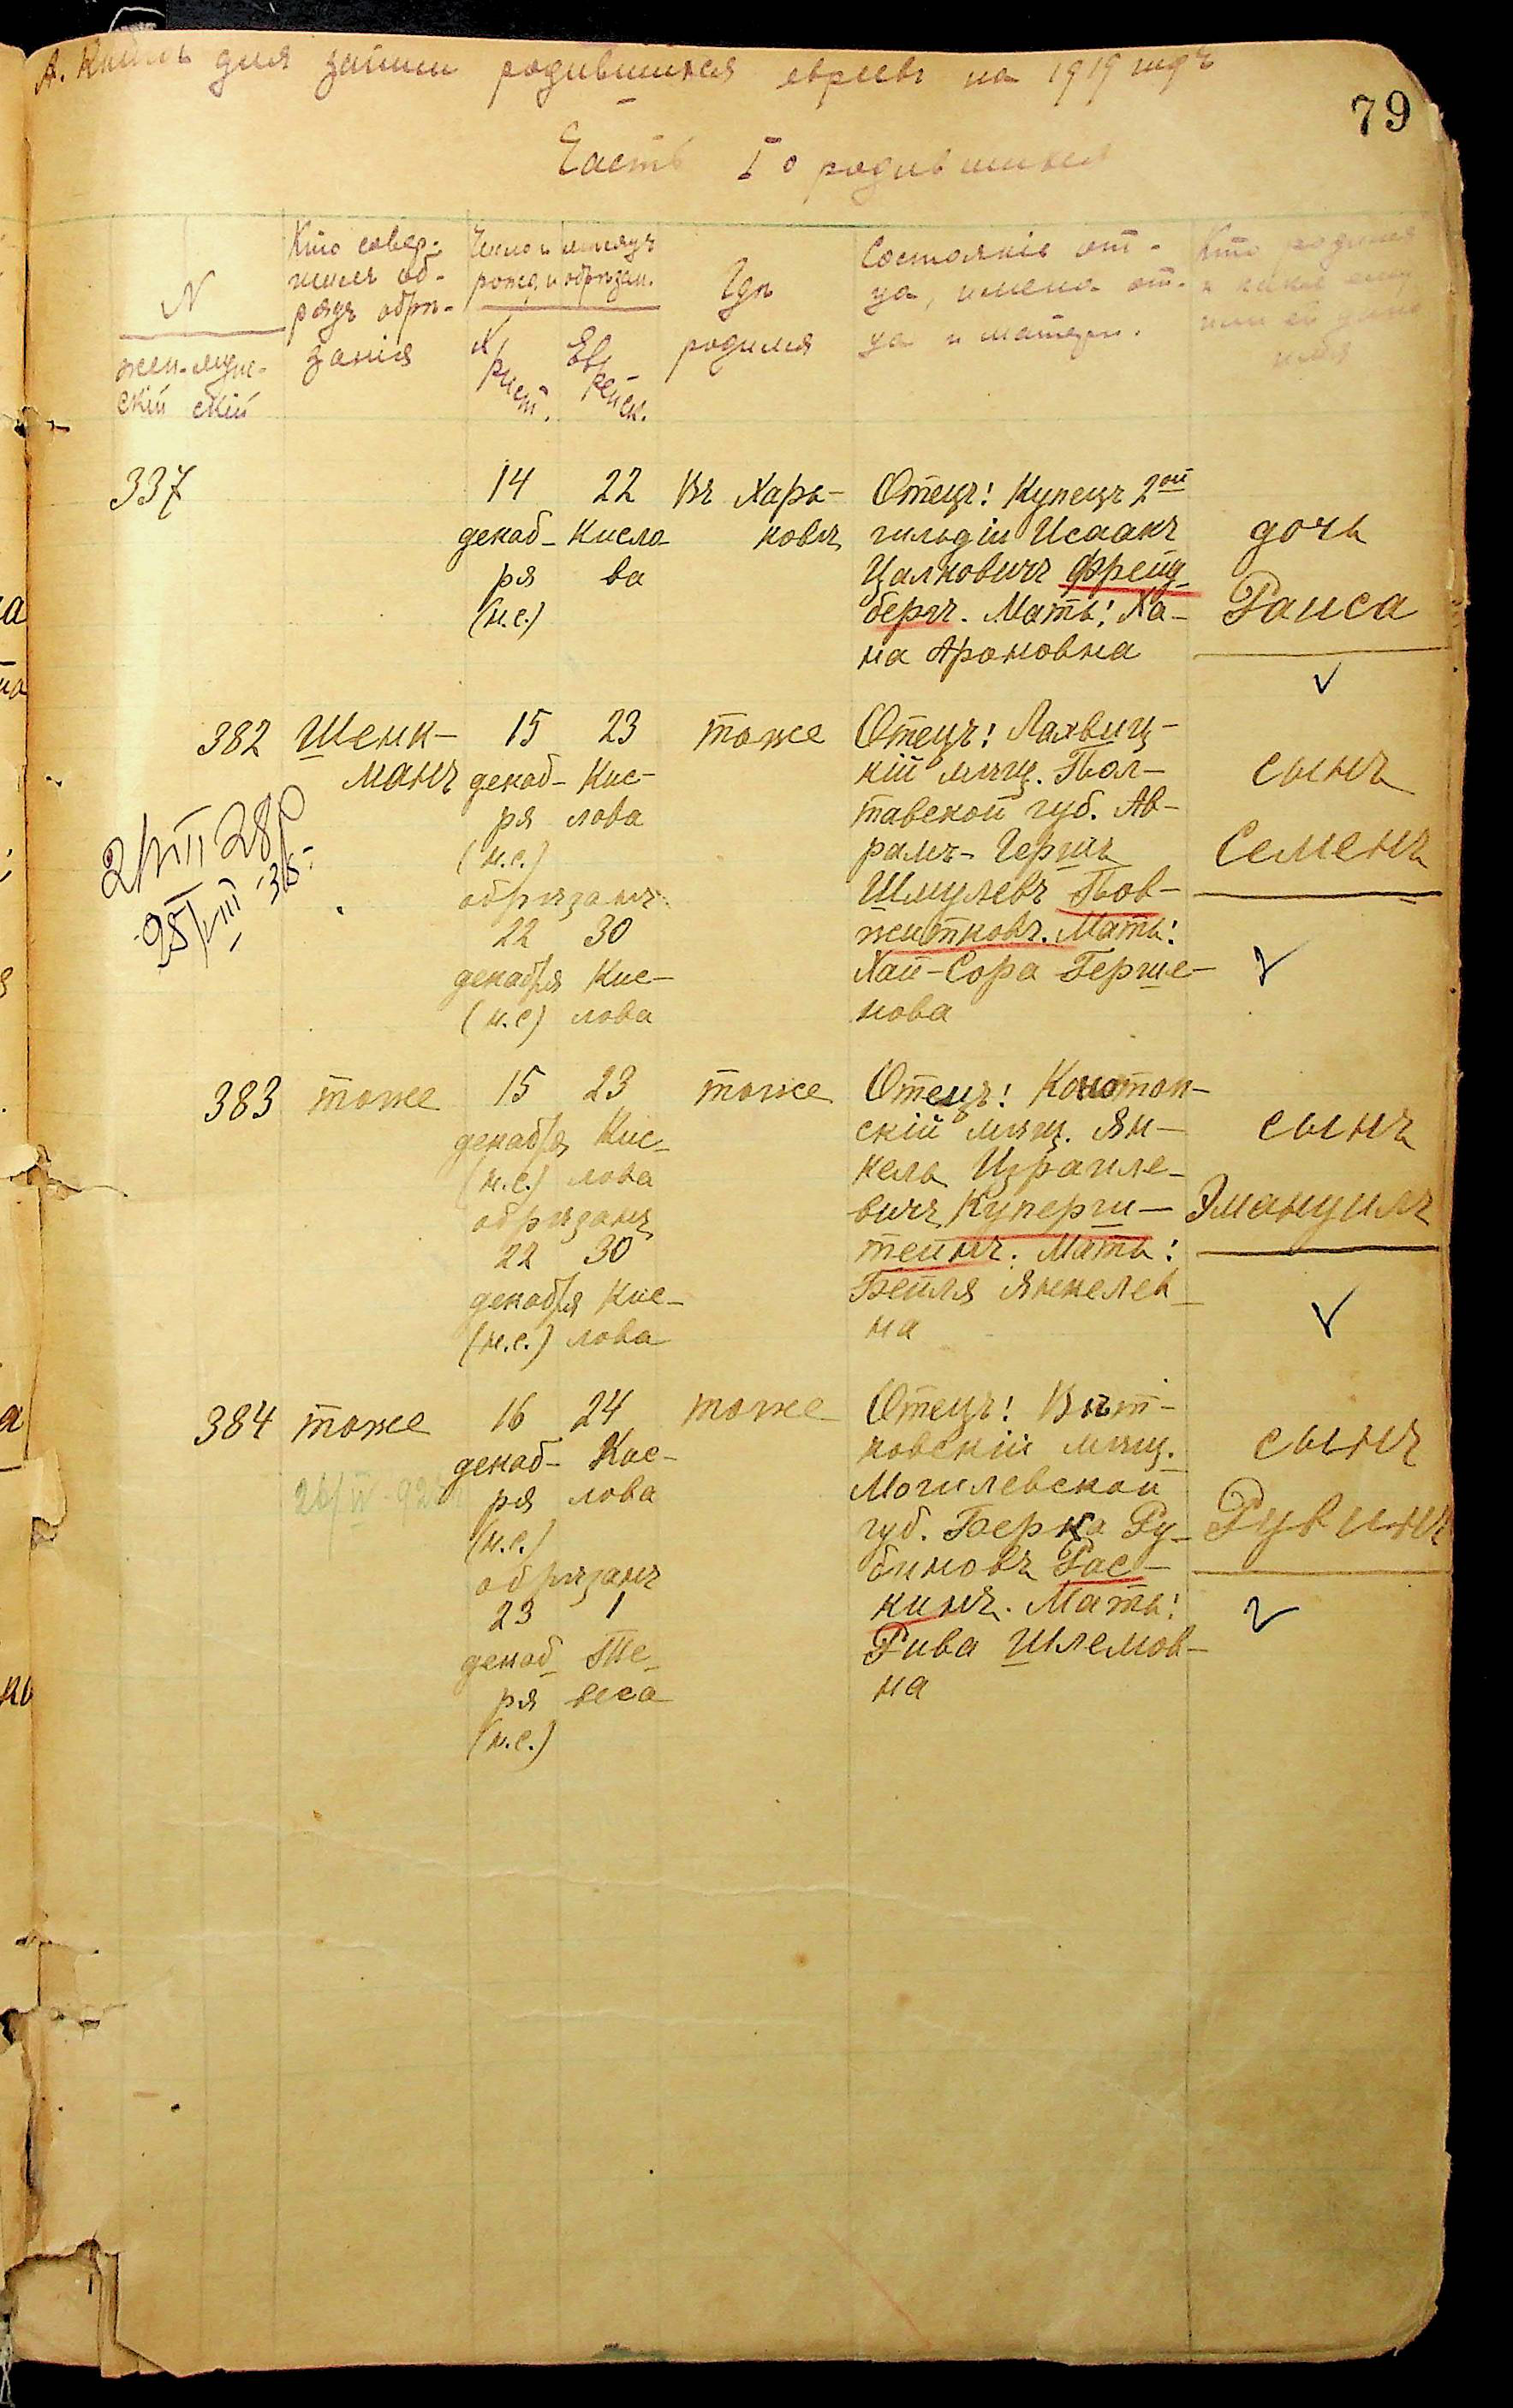 для записи родившихся евреевъ на 1919 годъ
79
Часть I о родившихся
N
женскій мужескій
Кто совер-
шилъ об-
рядъ обрѣ-
занія
Число и мѣсяцъ
рожд. и обрѣзан.
Христ. Еврейск.
Гдѣ
родился
Состояніе от-
ца, имена от-
ца и матери.
Кто родился
и какое ему
или ей дано
имя
337
14 22
декаб- Кисле-
ря ва
(н.с.)
Въ Харь-
ковѣ
Отецъ: Купецъ 2ой
гильдіи Исаакъ
Цалковичъ Фрейд-
бергъ. Мать: Ха-
на Ароновна
дочь
Раиса
382
Шенк-
манъ
15 23
декаб- Кис-
ря лова
(н.с.)
обрѣзанъ:
22 30
декабря Кис-
(н.с) лова
тоже
Отецъ: Лохвиц-
кій мѣщ. Пол-
тавской губ. Ав-
рамъ-Гершъ
Шмулевъ Пов-
житковъ. Мать:
Хая-Сора Герше-
нова
сынъ
Семенъ
383
тоже
15 23
декабря Кис-
(н.с.) лова
обрѣзанъ
22 30
декабря Кис-
(н.с.) лова
тоже
Отецъ: Конотоп-
скій мѣщ. Ян-
кель Израиле-
вичъ Куперш-
тейнъ. Мать:
Бейля Янкелев-
на
сынъ
Эмануилъ
384
тоже
16 24
декаб- Кис-
ря лова
(н.с.)
обрѣзанъ
23 1
декаб- Те-
ря веса
(н.с.)
тоже
Отецъ: Вѣт-
ковскій мѣщ.
Могилевской
губ. Берка Ру-
биновъ Рас-
кинъ. Мать:
Рива Шлемов-
на
сынъ
Рувинъ